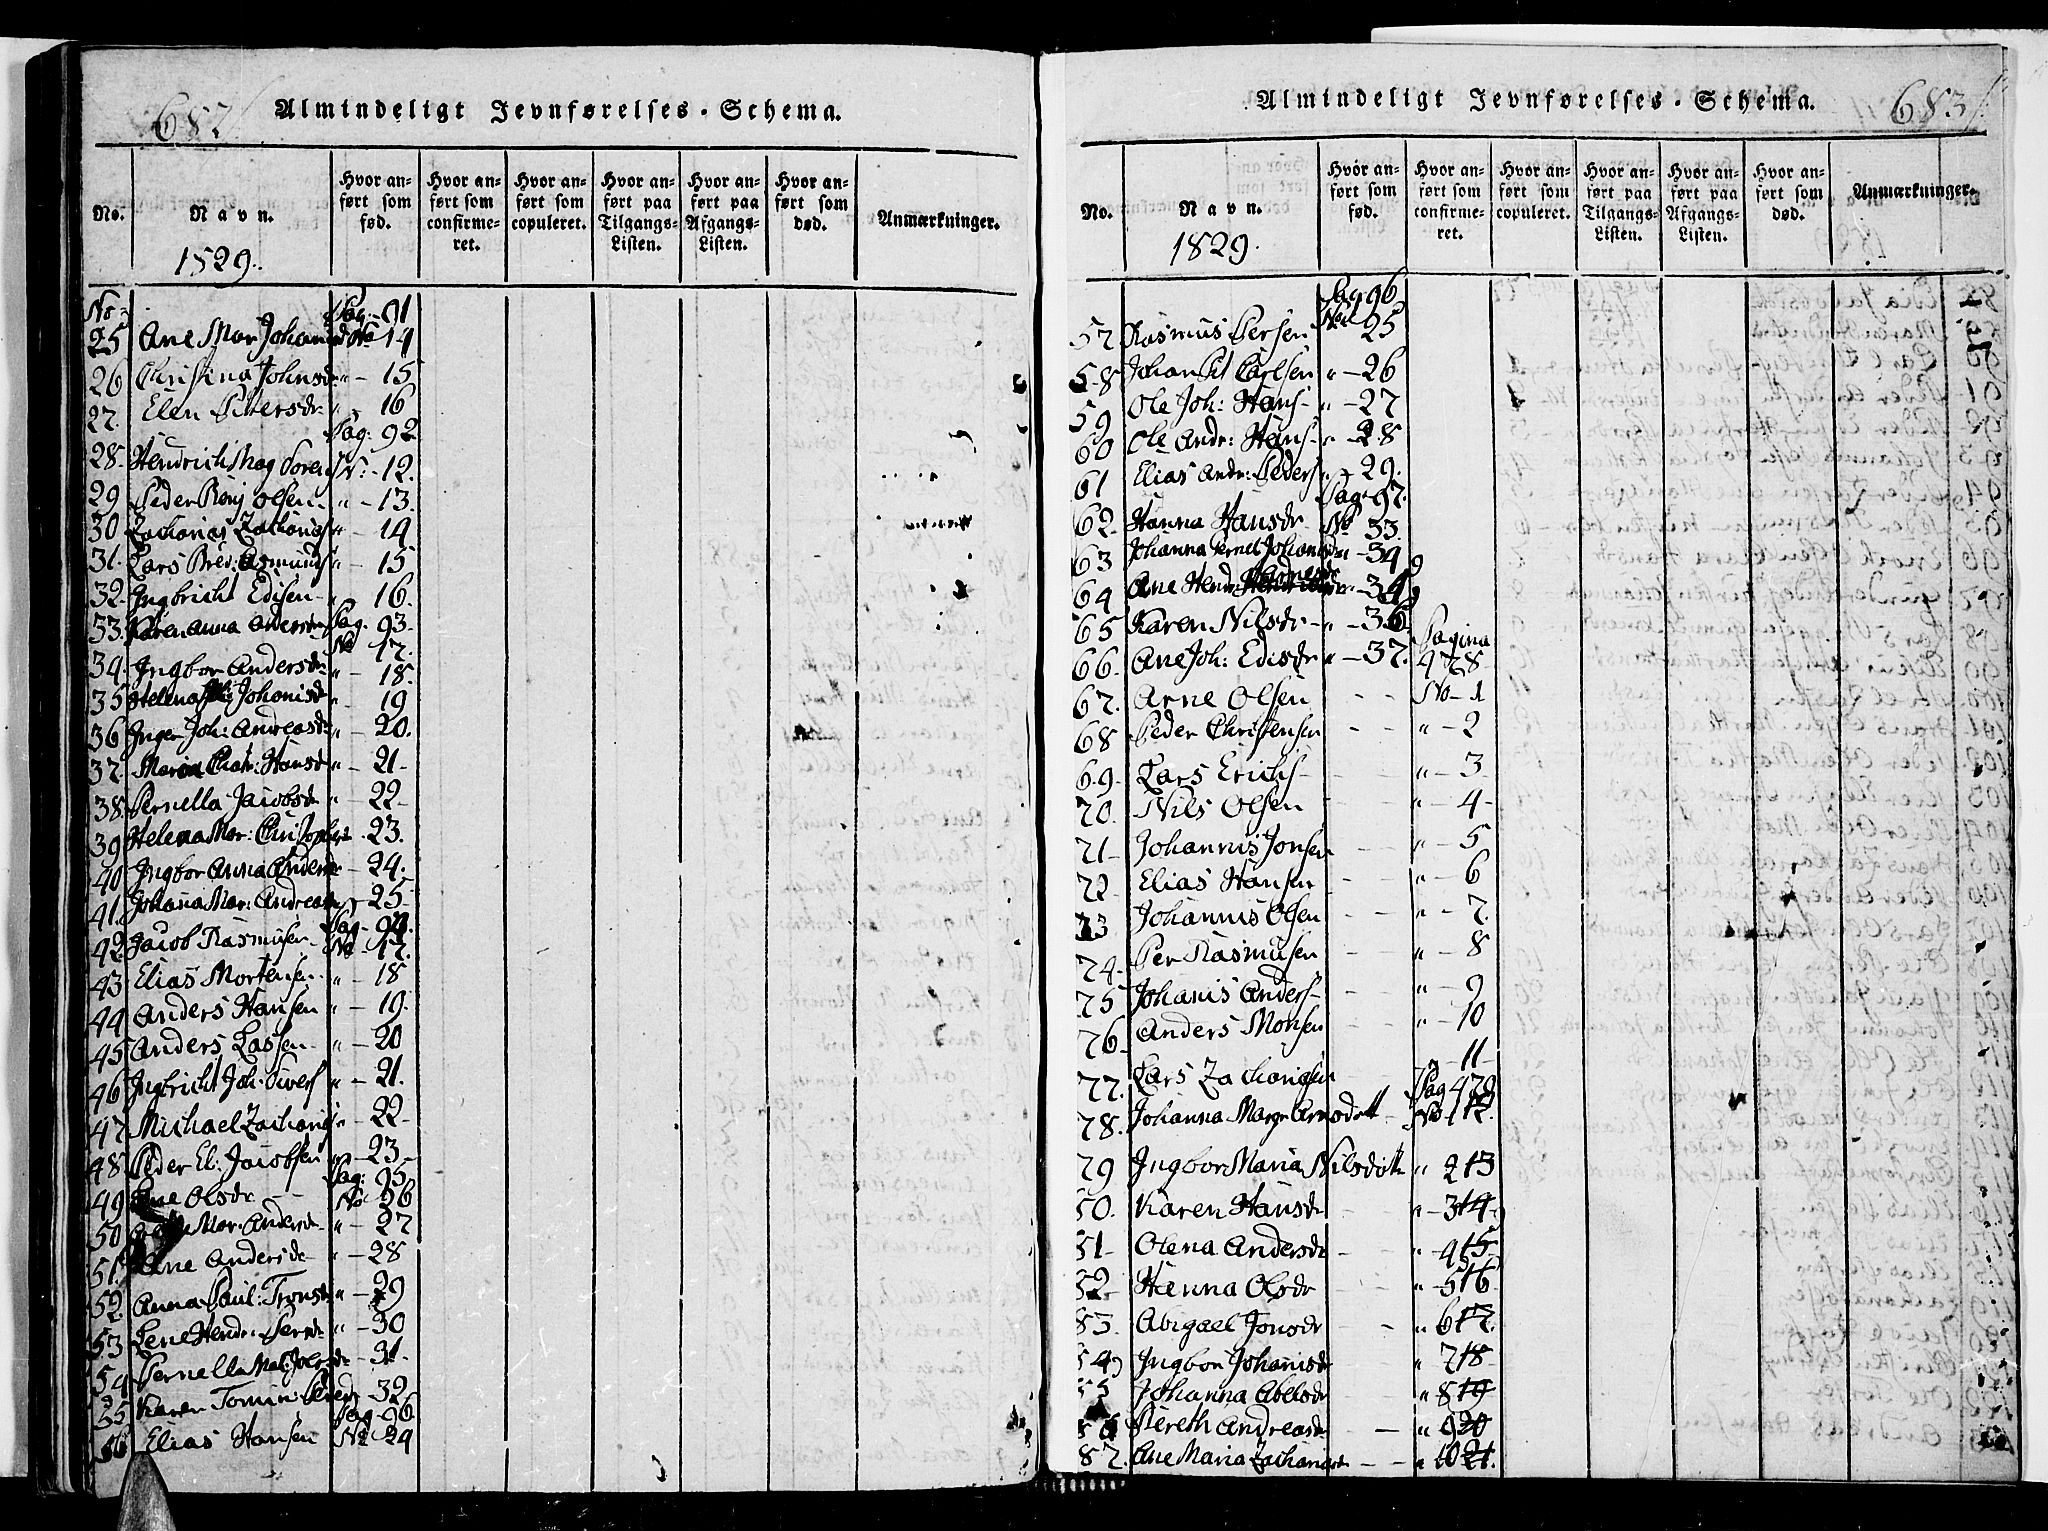 682
Almindeligt Jevnførelses-Schema.
No. Navn. 1829. Hvor anført som fød. Hvor anført som confirmeret. Hvor anført som copuleret. Hvor anført paa Tilgangs-Listen. Hvor anført paa Afgangs-Listen. Hvor anført som død. Anmærkninger.
No Pag. 91
25 Ane Mar Johansd No 14
26 Christina Johnsdr " - 15
27. Elen Pedersdr " 16
Pag: 92
28. Hendrich Mag Soren N: - 12.
29 Peder Benj Olsen " - 13.
30 Zacharias Zacharias " - 14
31. Lars Bred: Asmunds " - 15
32. Ingbricht Edisen " 16.
Pag. 93.
33. Karen Anna Andersdr No 17.
34. Ingbor Andersdr " - 18.
35 Helena Johanisd " 19
36 Inger Joh: Andreasdr " - 20.
37. Maria Cath: Hansd " - 21-
38. Pernella Jacobsdr " - 22-
39 Helena Mar: Christophersd - 23.
40 Ingbor Anna Andersdr - 24.
41. Johana Mar: Andreasdr - 25-
Pag. 94.
42. Jacob Rasmusen No 17.
43 Elias Mortensen " - 18
44 Anders Hansen " - 19.
45 Anders Larsen " - 20
46 Ingbricht Joh: Sivers " - 21.
47. Michael Zacharias " - 22-
48 Peder El: Jacobsen " - 23-
Pag: 95
49 Ane Olsdr - - No 26
50 Mar: Andersdr " - 27
51. Ane Andersdr " - 28
52. Anna Paul: Tronsdr " - 29
53 Lene Hendr: Persdr " - 30
54 Pernella Mat: Joensdr - 31-
55 Karen Tomin: Pedersdr - 32
Pag - 96
56 Elias Hansen No 24
683
Almindeligt Jevnførelses-Schema.
No. Navn. 1829. Hvor anført som fød. Hvor anført som confirmeret. Hvor anført som copuleret. Hvor anført paa Tilgangs-Listen. Hvor anført paa Afgangs-Listen. Hvor anført som død. Anmærkninger.
Pag: 96
57 Rasmus Persen No 25
58 Johan Pet Carlsen " - 26
59 Ole Joh: Hans- " - 27
60 Ole Andr: Hans- " - 28
61 Elias Andr: Peders " - 29.
Pag: 97.
62 Hanna Hansdr No 33.
63 Johanna Pernel Johansdr - 34
64 Ane Hendr: - 34
65 Karen Nilsdr - " - 36
Pagina 478
66. Ane Joh: Edisdr " - 37.
67. Arne Olsen - - No - 1
68 Peder Christensen - " - 2
69. Lars Erichs- " - 3
70. Nils Olsen " - 4-
71- Johannis Jonsen " - 5
72- Elias Hansen - " - 6
73 Johannis Olsen - - " - 7.
74- Per Rasmusen - - " - 8
75 Johanis Anders- - " - 9
76- Anders Monsen - - " - 10
77. Lars Zachariasen " - 11-
Pag 479
78. Johanna Margr Arnesdatt - No 1 12.
79 Ingbor Maria Nilsdotter " 2 13
80. Karen Hansdr " - 3 14
81- Olena Andersdr - - " - 4 15
82- Hanna Olsdr - - " - 5 16
83. Abigael Jonsdr - " 6 17.
84 Ingbor Johanisdr " 7 18-
85 Johanna Abelsdr " 8 19
86 Bereth Andreasdr - " 9 20
87. Ane Maria Zachariasdr - - " 10 21.